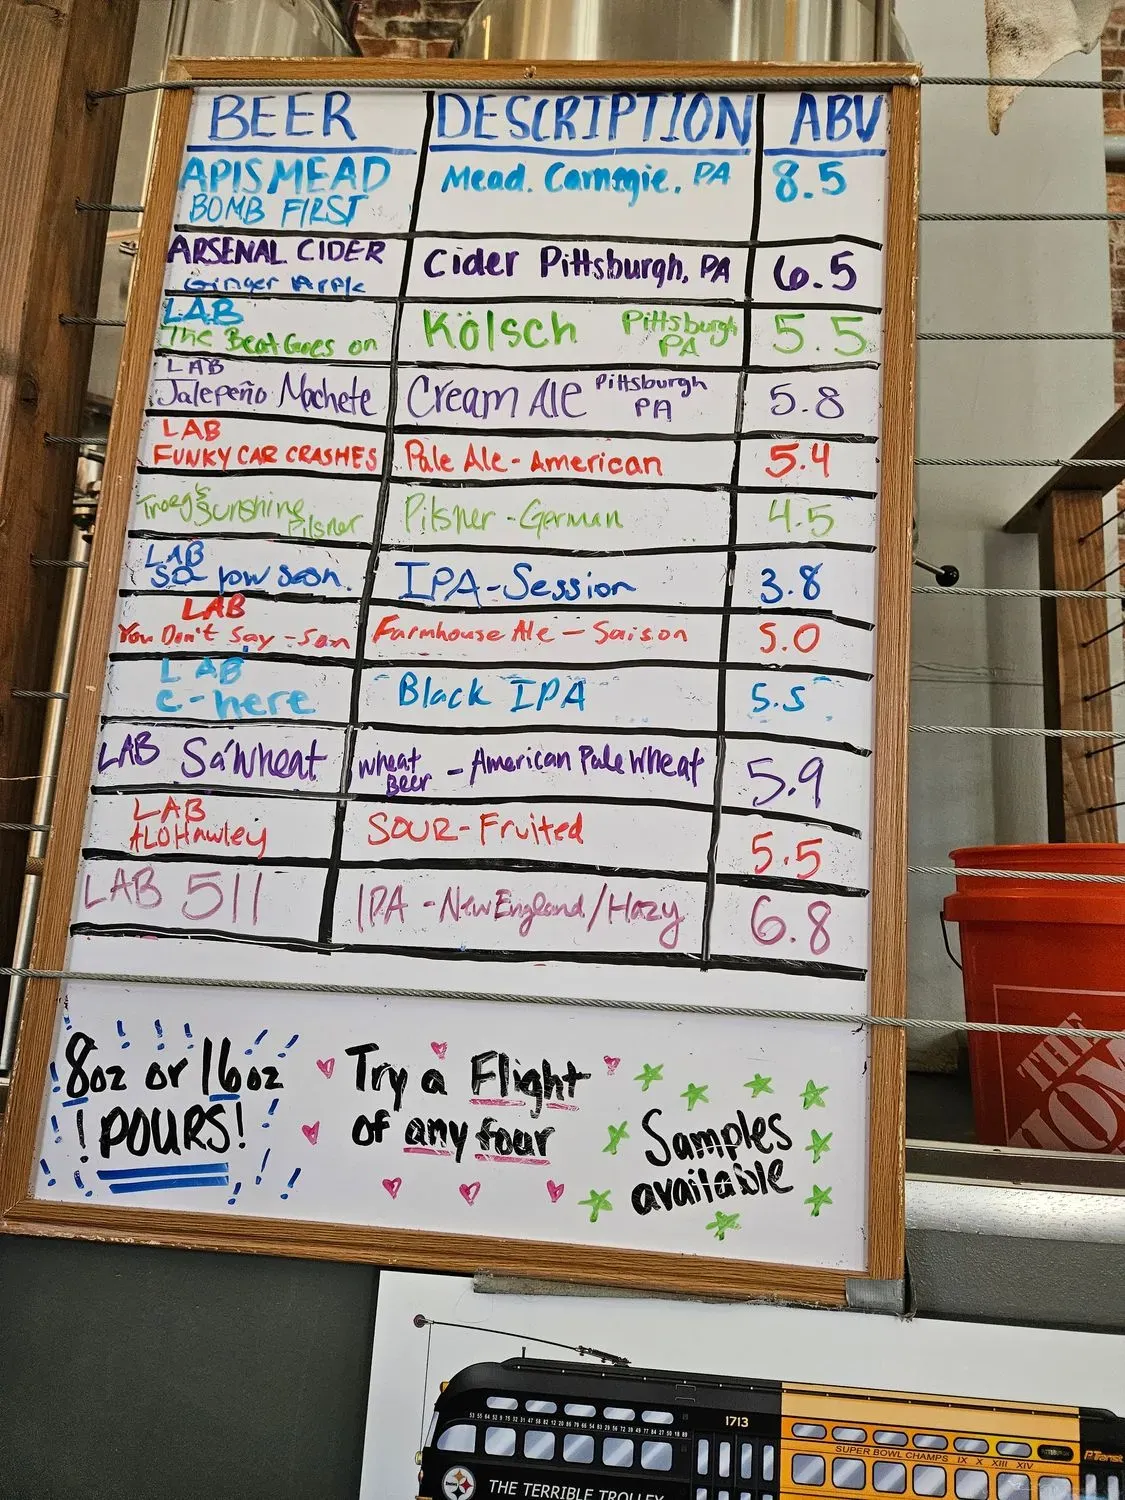 BEER DESCRIPTION ABV
APIS MEAD Mead. Carnegie, PA 8.5
BOMB FIRST
ARSENAL CIDER Cider Pittsburgh, PA 6.5
Ginger Apple
LAB Kölsch Pittsburgh PA 5.5
The Beat Goes on
LAB
Jalepeño Machete Cream Ale Pittsburgh PA 5.8
LAB
FUNKY CAR CRASHES Pale Ale-American 5.4
Troeg's Sunshine Pilsner Pilsner-German 4.5
LAB IPA-Session 3.8
LAB
You Don't Say - Farmhouse Ale - Saison 5.0
LAB
e-here Black IPA 5.5
LAB Sa'wheat Wheat Beer - American Pale Wheat 5.9
LAB SOUR-Fruited 5.5
ALOHawley
LAB 511 IPA - New England/Hazy 6.8
8oz or 16oz
! POURS!
Try a Flight
of any four
Samples
available
THE
HOM
1713
SUPER BOWL CHAMPS IX X XIII XIV
THE TERRIBLE TROLLEY